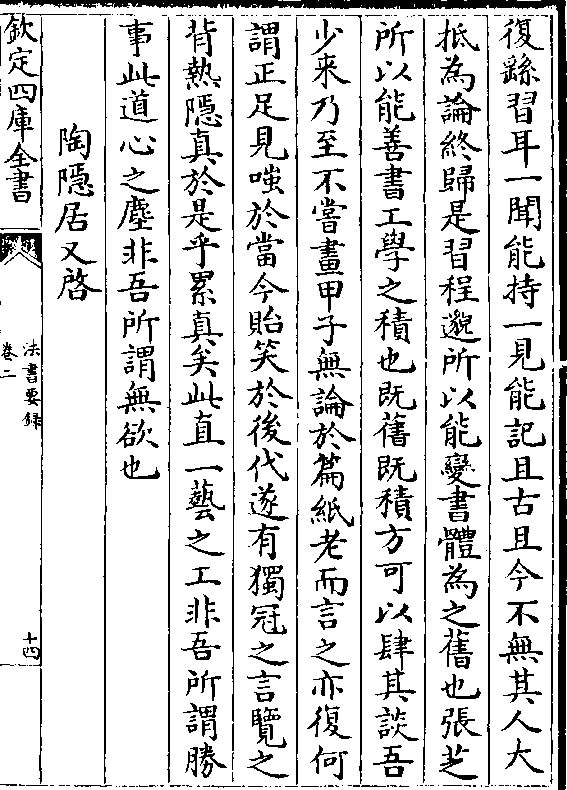 復繇習耳一聞能持一見能記且古且今不無其人大
抵為論終歸是習程邈所以能變書體為之舊也張芝
所以能善書工學之積也既舊既積方可以肆其談吾
少来乃至不嘗畫甲子無論於篇紙老而言之亦復何
謂正足見嗤於當今貽笑於後代遂有獨冠之言覽之
背熱隱真於是乎累真矣此直一藝之工非吾所謂勝
事此道心之塵非吾所謂無欲也
陶隱居又啓
欽定四庫全書
法書要録
卷二
十四